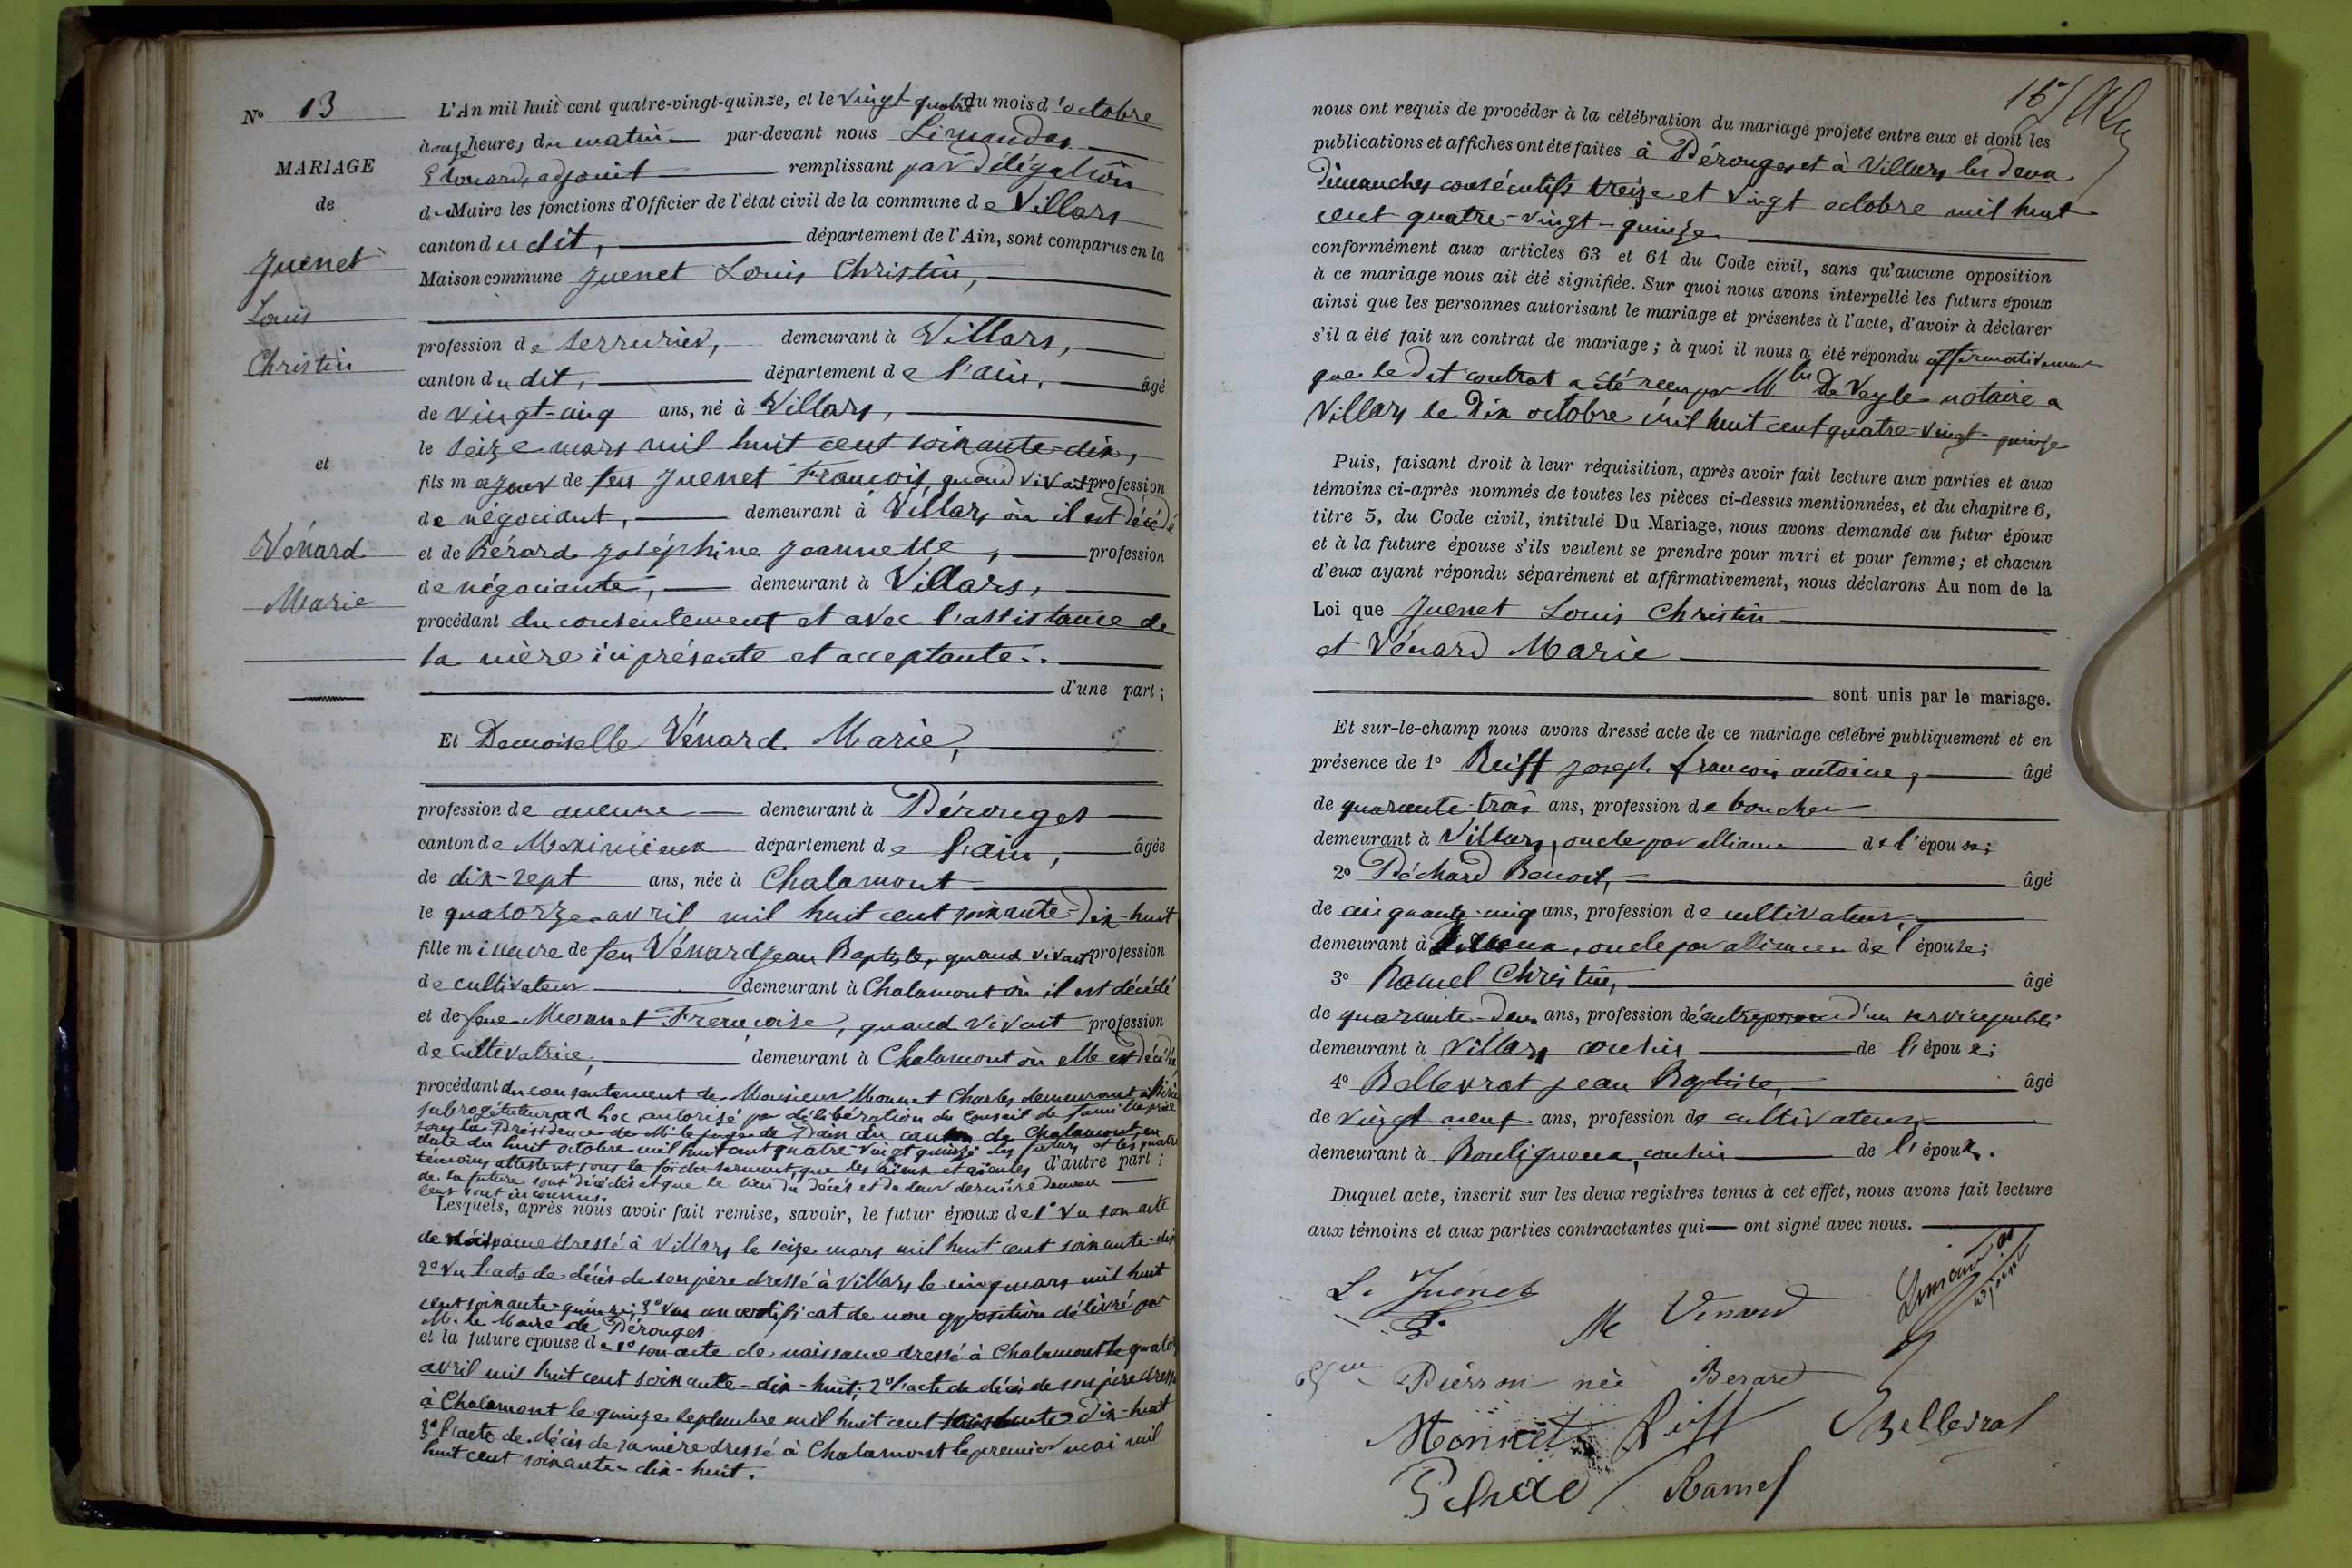 N° 13
MARIAGE
de
Juenet
Louis
Christin
et
Vénard
Marie
L'An mil huit cent quatre-vingt-quinze, et le vingt-quatre du mois d'octobre
à onze heures du matin par-devant nous Limandas
Edouard, adjoint remplissant par délégation
du Maire les fonctions d'Officier de l'état civil de la commune de Villars
canton dudit, département de l'Ain, sont comparus en la
Maison commune Juenet Louis Christin,
profession de serrurier, demeurant à Villars,
canton dudit, département de l'ain, âgé
de vingt-cinq ans, né à Villars,
le seize mars mil huit cent soixante-dix,
fils majeur de feu Juenet François, quand vivait profession
de négociant, demeurant à Villars où il est décédé
et de Bérard Joséphine Jeannette, profession
de négociante, demeurant à Villars,
procédant du consentement et avec l'assistance de
sa mère ici présente et acceptante.
d'une part;
Et Demoiselle Vénard Marie,
profession de aucune demeurant à Pérouges
canton de Meximieux département de l'ain, âgée
de dix-sept ans, née à Chalamont
le quatorze avril mil huit cent soixante-dix-huit
fille mineure de feu Vénard Jean Baptiste, quand vivait profession
de cultivateur demeurant à Chalamont où il est décédé
et de feue Monnet Françoise, quand vivait profession
de cultivatrice, demeurant à Chalamont où elle est décédée
procédant du consentement de Monsieur Monnet Charles demeurant à
subrogé tuteur ad hoc, autorisé par délibération du Conseil de famille prise
sous la Présidence de Mr le juge de Paix du canton de Chalamont en
date du huit octobre mil huit cent quatre-vingt quinze Les futurs et les quatre
témoins attestent sous la foi du serment que les aïeux et aïeules d'autre part;
de la future sont décédés et que le lieu du décès et de leur dernière demeure
leur sont inconnus.
Lesquels, après nous avoir fait remise, savoir, le futur époux de 1° Vu son acte
de naissance dressé à Villars le seize mars mil huit cent soixante-dix
2° Vu l'acte de décès de son père dressé à Villars le cinq mars mil huit
cent soixante-quinze; 3° Vu un certificat de non opposition délivré par
M. le Maire de Pérouges
et la future épouse de 1° son acte de naissance dressé à Chalamont le quatorze
avril mil huit cent soixante-dix-huit; 2° l'acte de décès de son père dressé
à Chalamont le quinze septembre mil huit cent soixante-dix-huit
3° l'acte de décès de sa mère dressé à Chalamont le premier mai mil
huit cent soixante-dix-huit.
16
nous ont requis de procéder à la célébration du mariage projeté entre eux et dont les
publications et affiches ont été faites à Pérouges et à Villars les deux
dimanches consécutifs treize et vingt octobre mil huit
cent quatre-vingt-quinze
conformément aux articles 63 et 64 du Code civil, sans qu'aucune opposition
à ce mariage nous ait été signifiée. Sur quoi nous avons interpellé les futurs époux
ainsi que les personnes autorisant le mariage et présentes à l'acte, d'avoir à déclarer
s'il a été fait un contrat de mariage; à quoi il nous a été répondu affirmativement
que le dit contrat a été reçu par Mtre De Veyle notaire à
Villars le dix octobre mil huit cent quatre-vingt-quinze
Puis, faisant droit à leur réquisition, après avoir fait lecture aux parties et aux
témoins ci-après nommés de toutes les pièces ci-dessus mentionnées, et du chapitre 6,
titre 5, du Code civil, intitulé Du Mariage, nous avons demandé au futur époux
et à la future épouse s'ils veulent se prendre pour mari et pour femme; et chacun
d'eux ayant répondu séparément et affirmativement, nous déclarons Au nom de la
Loi que Juenet Louis Christin
et Vénard Marie
sont unis par le mariage.
Et sur-le-champ nous avons dressé acte de ce mariage célébré publiquement et en
présence de 1° Reiff Joseph françois antoine, âgé
de quarante-trois ans, profession de boucher
demeurant à Villars, oncle par alliance de l'épouse;
2° Péchard Benoit, âgé
de cinquante-cinq ans, profession de cultivateur,
demeurant à oncle par alliance de l'épouse;
3° Ramel Christin, âgé
de quarante-deux ans, profession d'entrepreneur d'un service public
demeurant à Villars cousin de l'épouse;
4° Bellevrat Jean Baptiste, âgé
de vingt neuf ans, profession de cultivateur,
demeurant à Bouligneux, cousin de l'époux.
Duquel acte, inscrit sur les deux registres tenus à cet effet, nous avons fait lecture
aux témoins et aux parties contractantes qui ont signé avec nous.
L. Juenet
M Vénard
Limandas
adjoint
Pierron née Berard
Monnet Reiff Bellevrat
Péchard Ramel